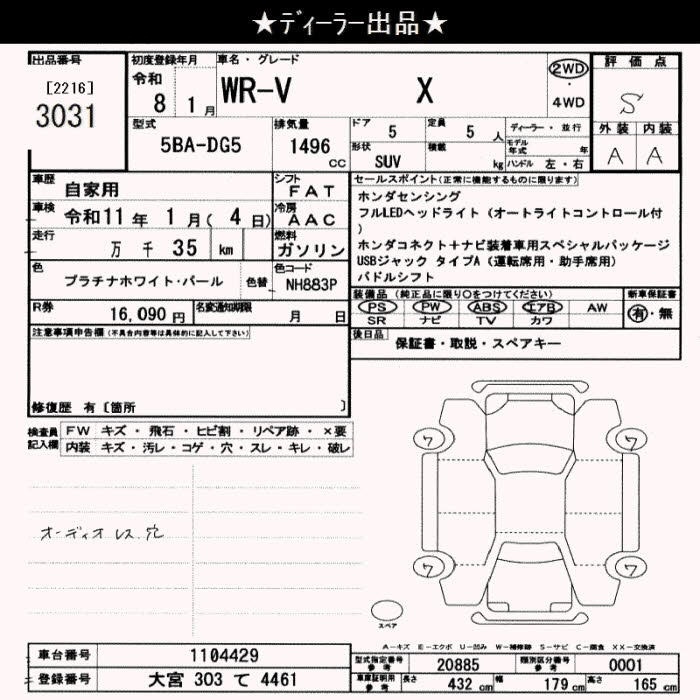 ★ディーラー出品★
出品番号
[2216]
3031
初度登録年月
令和
8 1 月
車名・グレード
WR-V X
2WD
・
4WD
評価点
S
外装 内装
A A
型式
5BA-DG5
排気量
1496 cc
ドア 5
定員 5 人
形状 SUV
積載 kg
ディーラー・並行
モデル年式 年
ハンドル 左・右
車歴 自家用
シフト FAT
車検 令和11年 1月( 4日)
冷房 AAC
走行 万 千 35 km
燃料 ガソリン
色 プラチナホワイト・パール 色替
色コード NH883P
R券 16,090 円
名変通知期限 月 日
セールスポイント(正常に機能するものに限ります)
ホンダセンシング
フルLEDヘッドライト（オートライトコントロール付
）
ホンダコネクト＋ナビ装着車用スペシャルパッケージ
USBジャック タイプA（運転席用・助手席用）
パドルシフト
装備品 (純正品に限り○をつけてください)
PS PW ABS エアB AW
SR ナビ TV カワ
新車保証書
有・無
後日品 保証書・取説・スペアキー
注意事項申告欄(不具合内容等は具体的に記入して下さい)
修復歴 有〔箇所 〕
検査員記入欄
FW キズ・飛石・ヒビ割・リペア跡・×要
内装 キズ・汚レ・コゲ・穴・スレ・キレ・破レ
オーディオレス穴
ワ ワ
ワ ワ
スペア
A－キズ E－エクボ U－凹み W－補修跡 S－サビ C－腐食 XX－交換済
車台番号 1104429
登録番号 大宮 303 て 4461
型式指定番号 参考 20885
類別区分番号 参考 0001
車庫証明用 参考 長さ 432 cm 幅 179 cm 高さ 165 cm